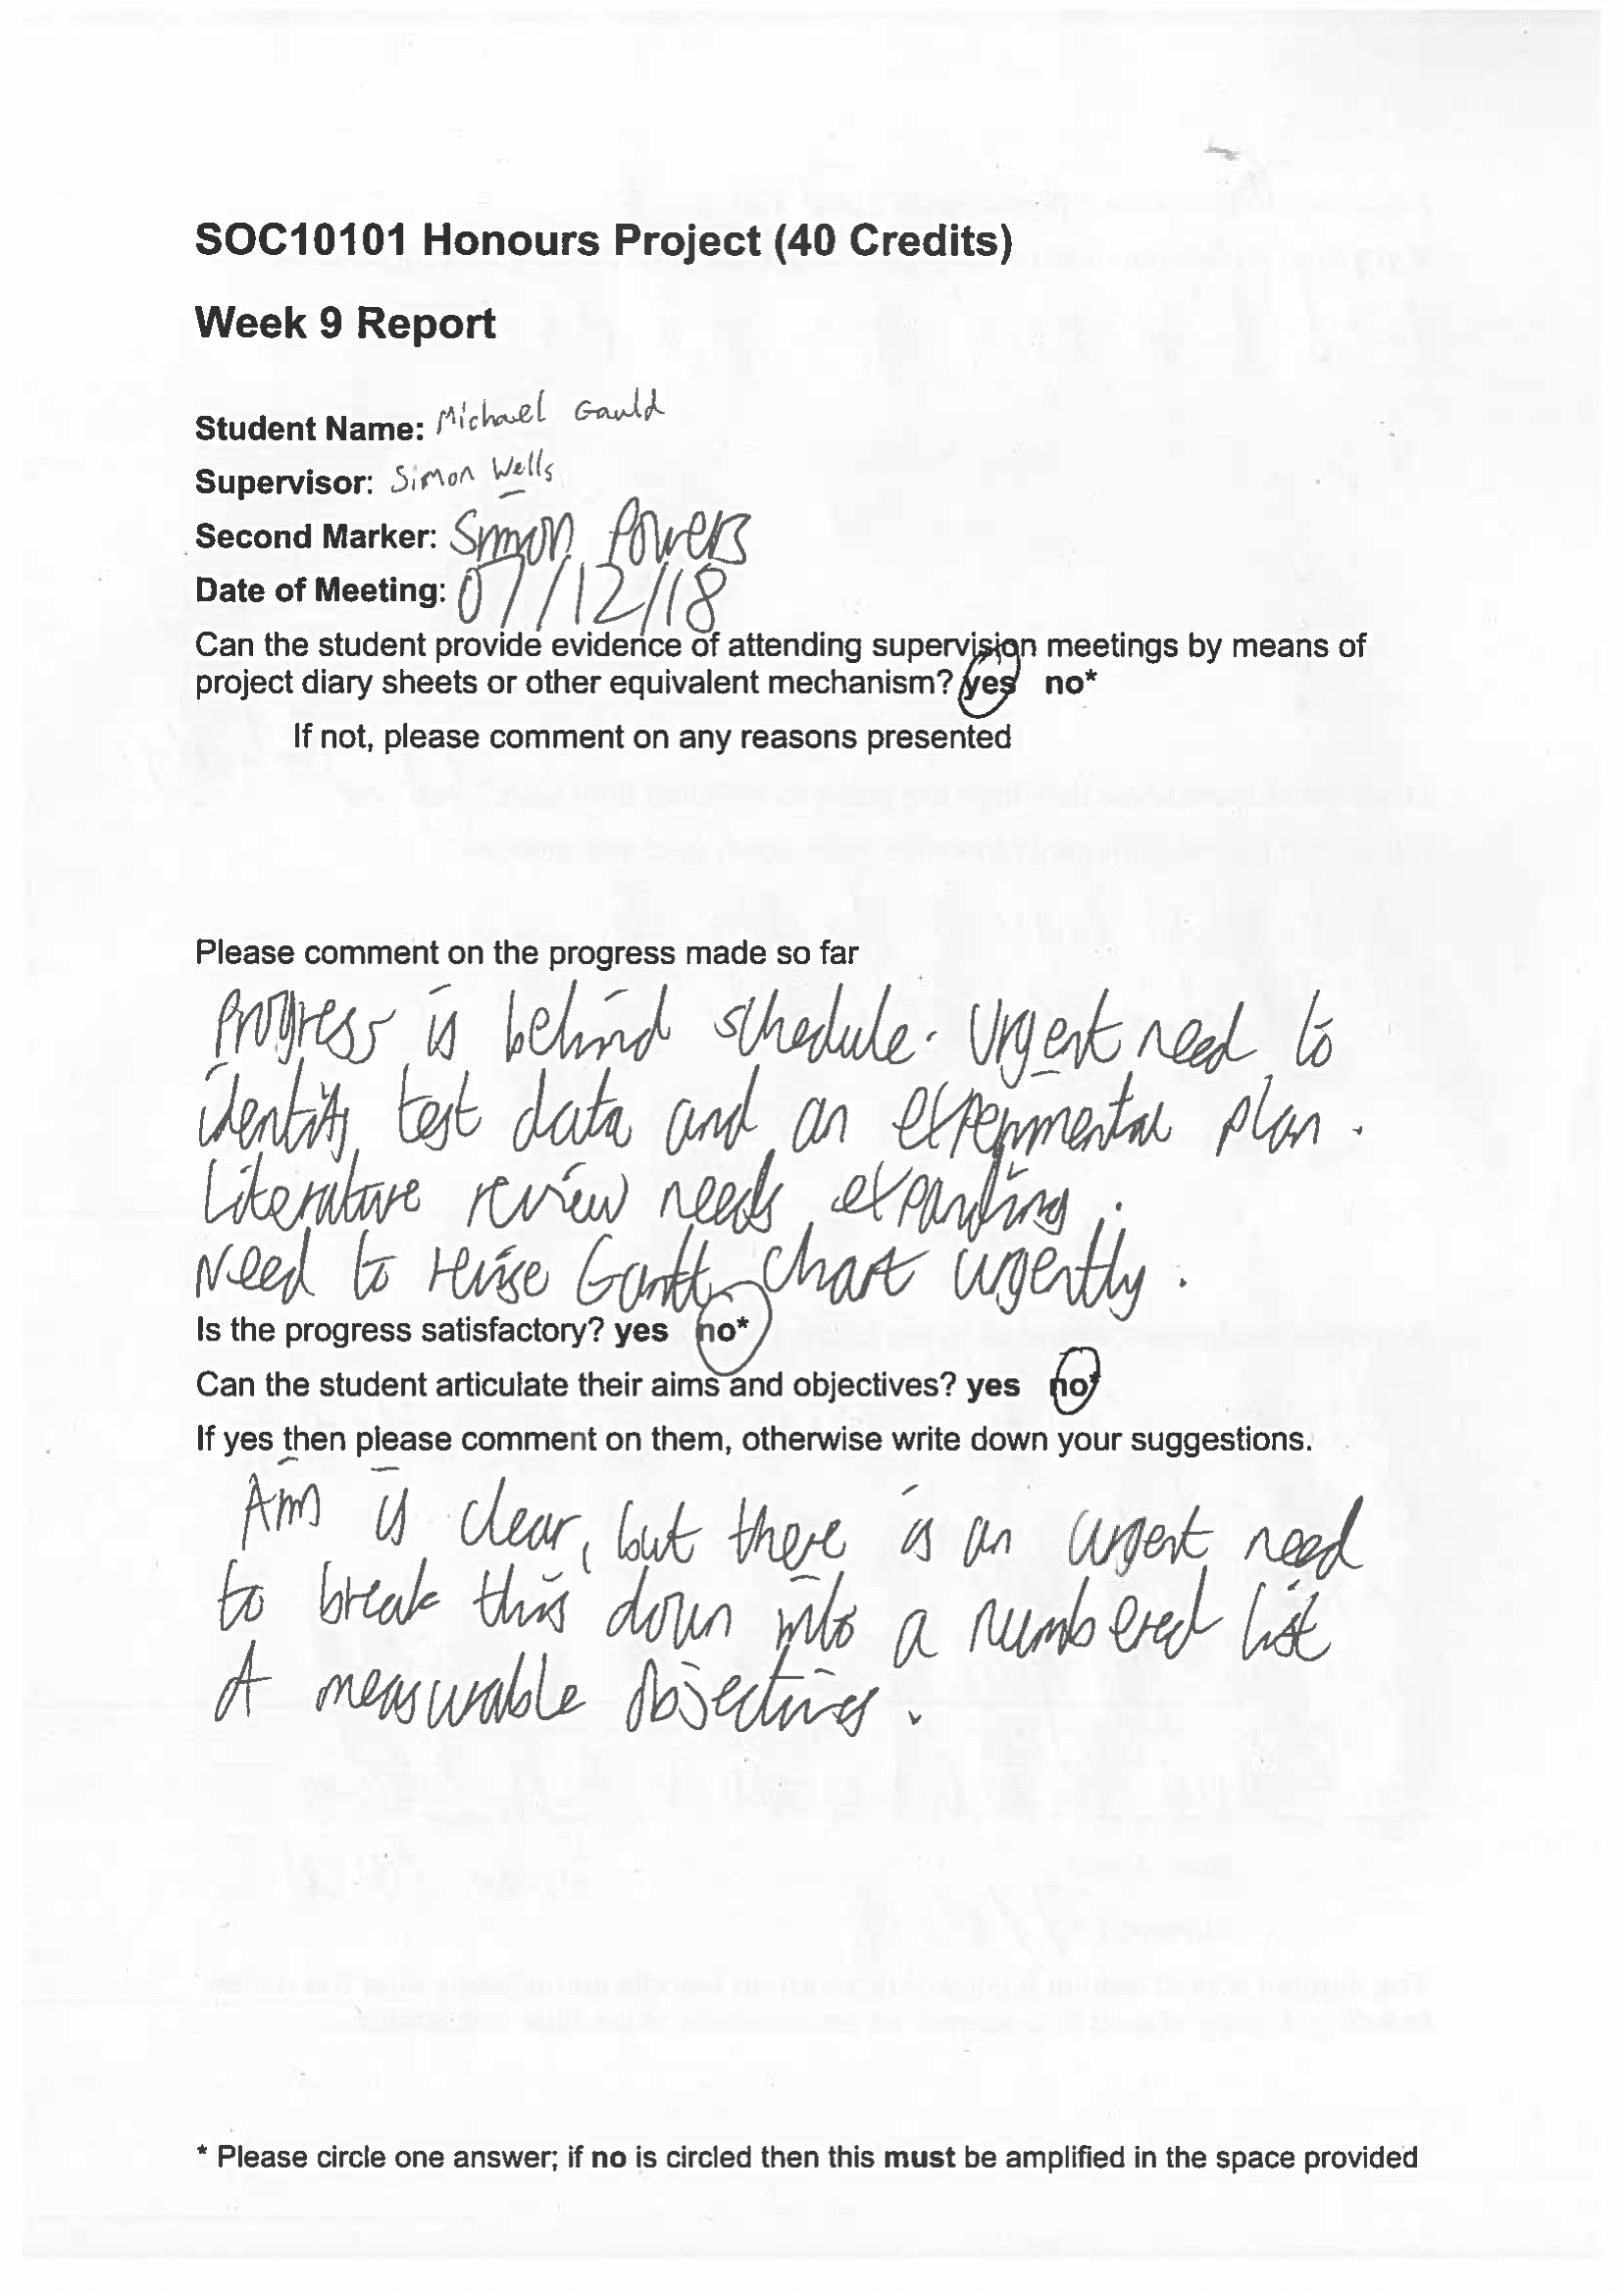 SOC10101 Honours Project (40 Credits)
Week 9 Report
Student Name: Michael Gauld
Supervisor: Simon Wells
Second Marker: Simon Powers
Date of Meeting: 07/12/18
Can the student provide evidence of attending supervision meetings by means of
project diary sheets or other equivalent mechanism? yes no*
If not, please comment on any reasons presented
Please comment on the progress made so far
Progress is behind schedule. Urgent need to
identify test data and an experimental plan.
Literature review needs expanding.
Need to revise Gantt chart urgently.
Is the progress satisfactory? yes no*
Can the student articulate their aims and objectives? yes no*
If yes then please comment on them, otherwise write down your suggestions.
Aim is clear, but there is an urgent need
to break this down into a numbered list
of measurable objectives.
* Please circle one answer; if no is circled then this must be amplified in the space provided